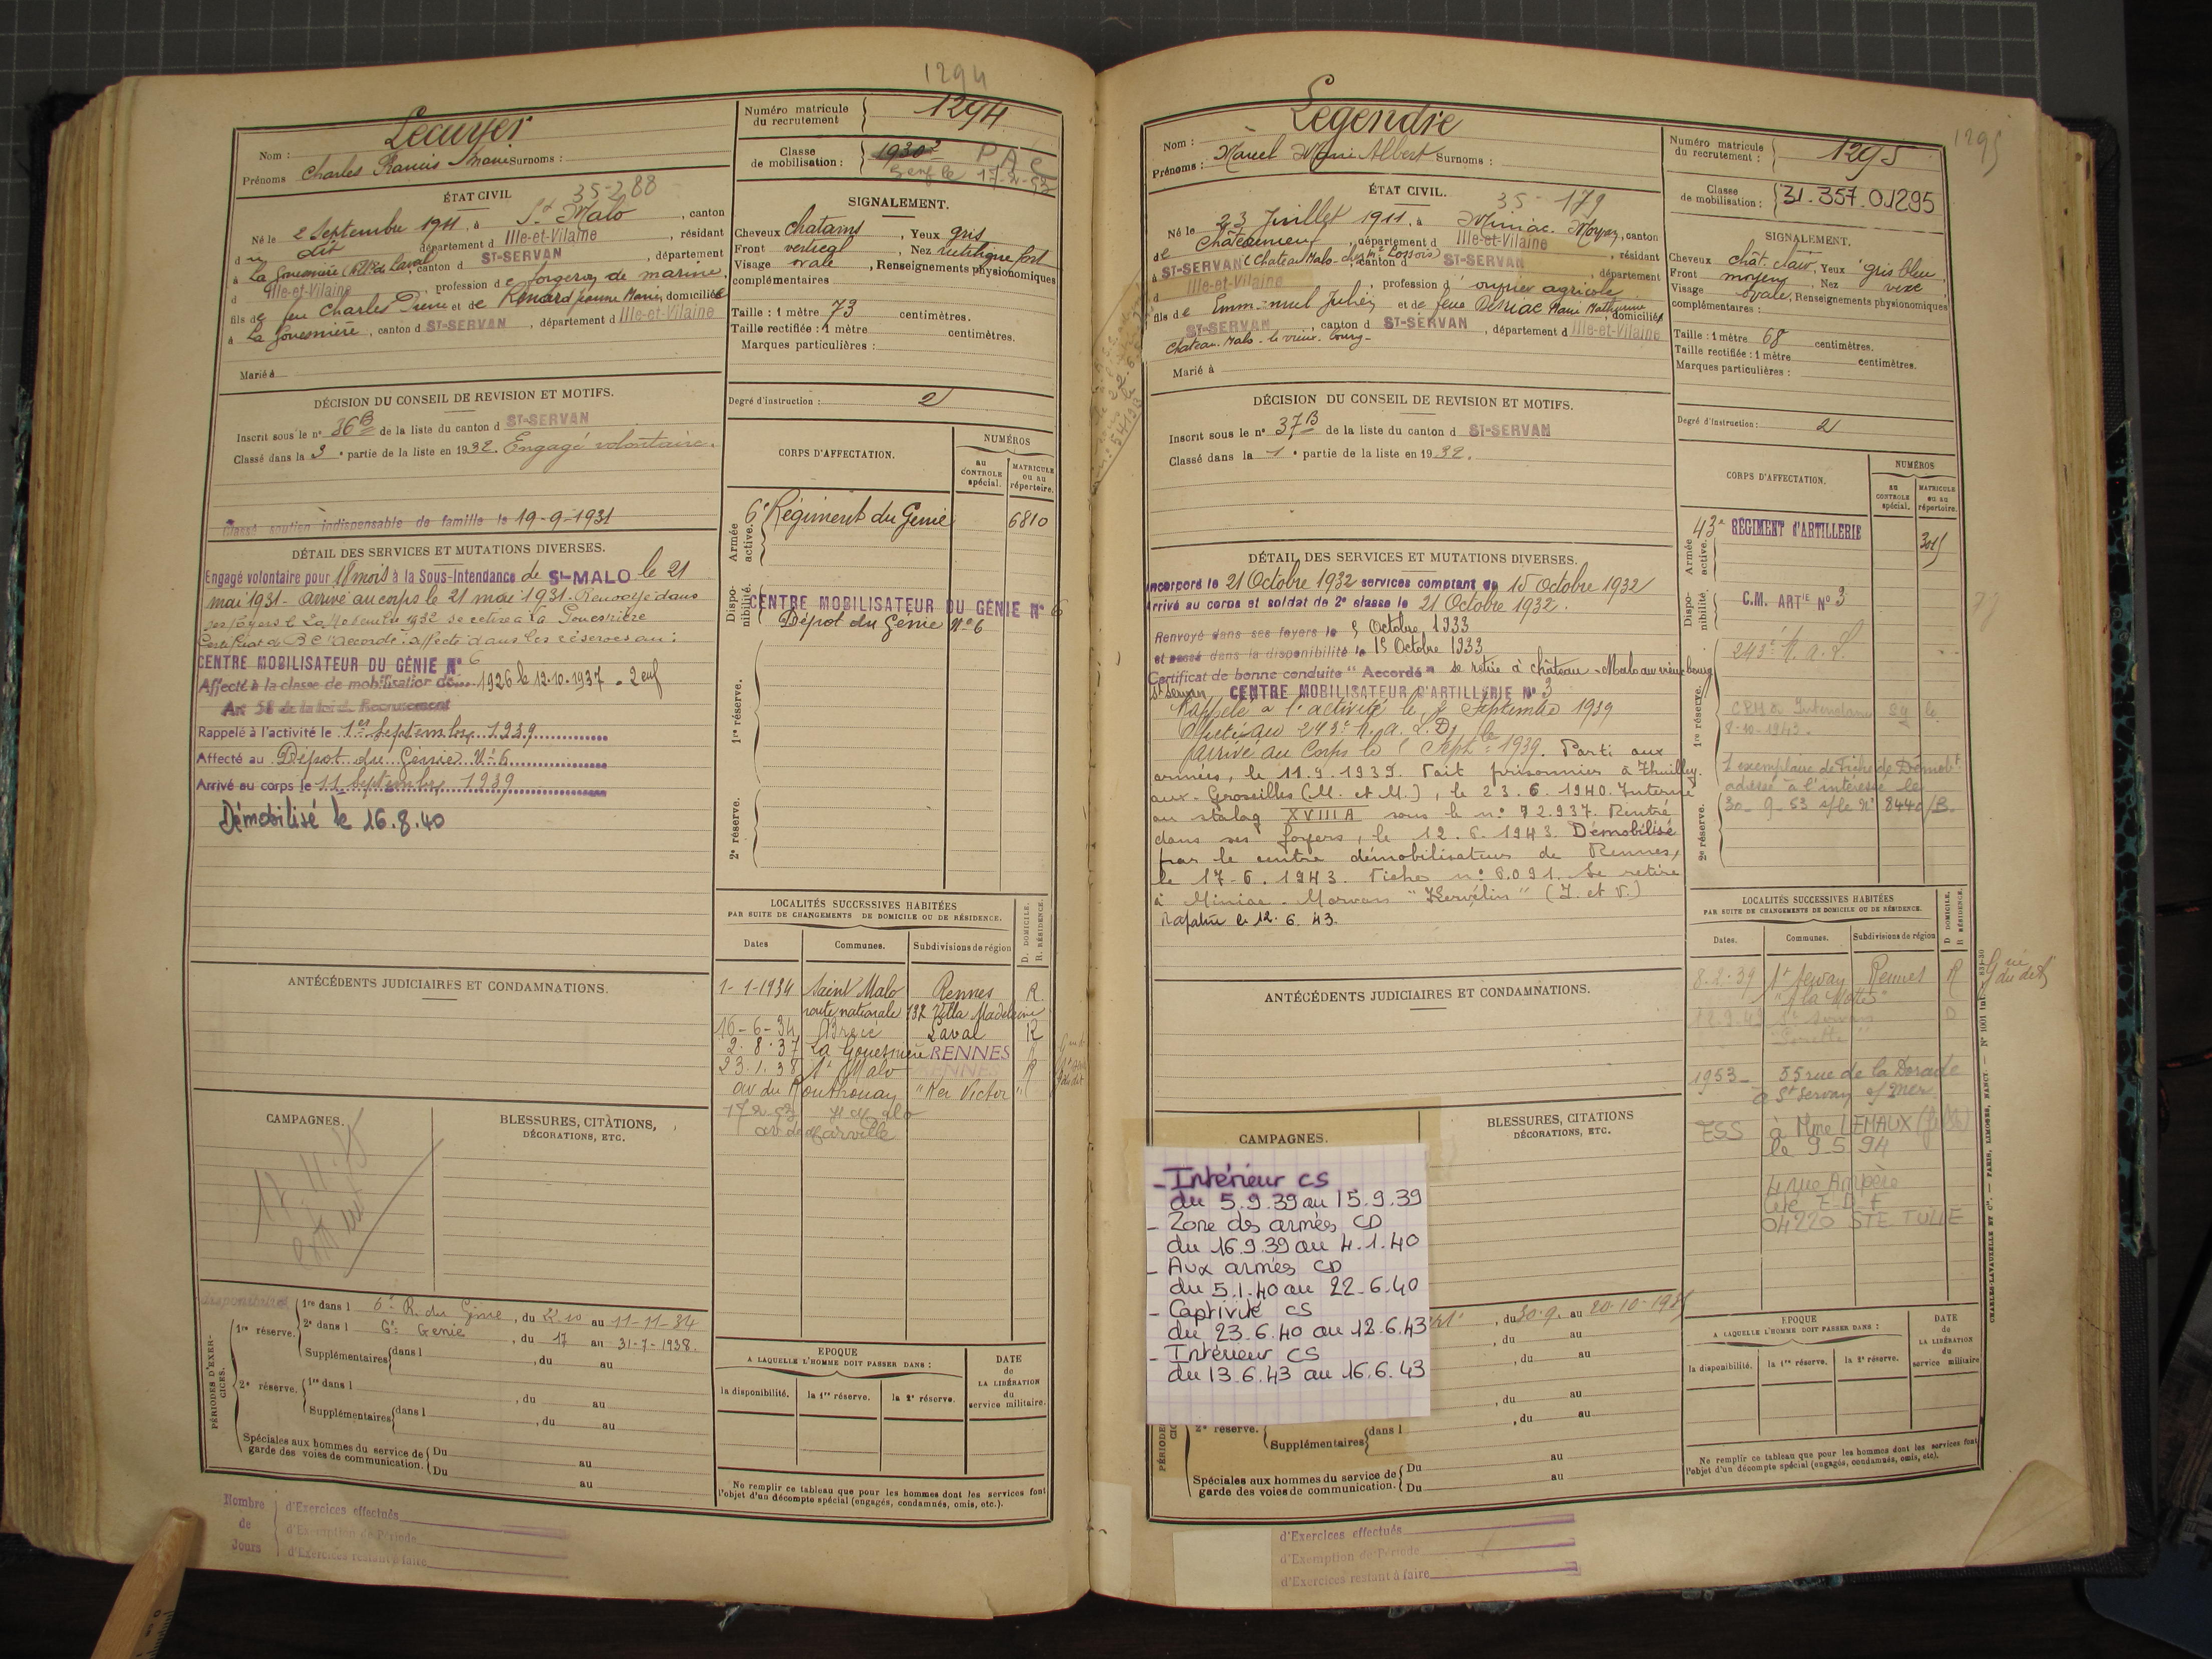 1294
Lecuyer
Nom :
Prénoms Charles Francis Marie Surnoms :
Numéro matricule du recrutement 1294
Classe de mobilisation : 1930
PAC
ÉTAT CIVIL
35-288
Né le 2 Septembre 1911, à St Malo, canton
du dit département d Ille-et-Vilaine, résidant
à La Gouesnière, canton d ST-SERVAN, département
d Ille-et-Vilaine, profession de forgeron de marine,
fils de feu Charles Pierre et de Renard Jeanne Marie, domiciliée
à La Gouesnière, canton d ST-SERVAN, département d Ille-et-Vilaine
Marié à
SIGNALEMENT.
Cheveux chatains, Yeux gris
Front vertical, Nez rectiligne fort
Visage ovale, Renseignements physionomiques
complémentaires
Taille : 1 mètre 73 centimètres.
Taille rectifiée : 1 mètre centimètres.
Marques particulières :
DÉCISION DU CONSEIL DE REVISION ET MOTIFS.
Inscrit sous le n° 36B de la liste du canton d ST-SERVAN
Classé dans la 3e partie de la liste en 1932. Engagé volontaire.
Classé soutien indispensable de famille le 19-9-1931
Degré d'instruction : 2
CORPS D'AFFECTATION.
NUMÉROS
au CONTROLE spécial.
MATRICULE ou au répertoire.
Armée active.
6e Régiment du Génie 6810
Disponibilité.
CENTRE MOBILISATEUR DU GÉNIE N° 6
Dépôt du Génie N° 6
1re réserve.
2e réserve.
DÉTAIL DES SERVICES ET MUTATIONS DIVERSES.
Engagé volontaire pour 18 mois à la Sous-Intendance de St-MALO le 21
mai 1931 - arrivé au corps le 21 mai 1931. Renvoyé dans
ses foyers le 1932 se retire à La Gouesnière
Certificat de B C "Accordé". affecté dans les réserves au :
CENTRE MOBILISATEUR DU GÉNIE N° 6
Affecté à la classe de mobilisation de 1926 le 12.10.1937 - 2 enf
Art 58 de la loi de Recrutement
Rappelé à l'activité le 1er Septembre 1939
Affecté au Dépôt du Génie N° 6
Arrivé au corps le 11 Septembre 1939
Démobilisé le 16.8.40
LOCALITÉS SUCCESSIVES HABITÉES
PAR SUITE DE CHANGEMENTS DE DOMICILE OU DE RÉSIDENCE.
Dates Communes. Subdivisions de région D. DOMICILE. R. RÉSIDENCE.
1-1-1934 Saint Malo Rennes R.
route nationale 132 Villa Madeleine
16-6-34 Brecé Laval R
2.8.37 La Gouesnière RENNES R
23.1.38 St Malo RENNES R
av du "Ker Victor"
17.2.53 St Malo
av de Marville
ANTÉCÉDENTS JUDICIAIRES ET CONDAMNATIONS.
CAMPAGNES.
BLESSURES, CITATIONS,
DÉCORATIONS, ETC.
PÉRIODES D'EXERCICES.
1re réserve. 1re dans l 6e R. du Génie, du 22 10 au 11-11-34
2e dans l 6e Génie, du 17 au 31-7-1938.
Supplémentaires dans l , du au
2e réserve. 1re dans l , du au
Supplémentaires dans l , du au
Spéciales aux hommes du service de garde des voies de communication. Du au
Du au
EPOQUE
A LAQUELLE L'HOMME DOIT PASSER DANS :
la disponibilité. la 1re réserve. la 2e réserve.
DATE de LA LIBÉRATION du service militaire.
Ne remplir ce tableau que pour les hommes dont les services font
l'objet d'un décompte spécial (engagés, condamnés, omis, etc.).
Nombre de Jours
d'Exercices effectués
d'Exemption de Période
d'Exercices restant à faire
1295
Legendre
Nom :
Prénoms : Marcel Marie Albert Surnoms :
Numéro matricule du recrutement : 1295
Classe de mobilisation : 31.357.01295
ÉTAT CIVIL.
35 - 179
Né le 23 Juillet 1911, à Miniac-Morvan, canton
de Châteauneuf, département d Ille-et-Vilaine, résidant
à ST-SERVAN (Chateau Malo - chez Mr), canton d ST-SERVAN, département
d Ille-et-Vilaine, profession d'ouvrier agricole
fils de Emmanuel Julien et de feue Désriac Marie Mathurine, domicilié
ST-SERVAN, canton d ST-SERVAN, département d Ille-et-Vilaine
Chateau-Malo - le vieux-bourg -
Marié à
SIGNALEMENT.
Cheveux chât. clair, Yeux gris bleu
Front moyen, Nez vexe
Visage ovale, Renseignements physionomiques
complémentaires :
Taille : 1 mètre 68 centimètres.
Taille rectifiée : 1 mètre centimètres.
Marques particulières :
DÉCISION DU CONSEIL DE REVISION ET MOTIFS.
Inscrit sous le n° 37B de la liste du canton d ST-SERVAN
Classé dans la 1e partie de la liste en 1932.
Degré d'instruction : 2
CORPS D'AFFECTATION.
NUMÉROS
au CONTROLE spécial.
MATRICULE ou au répertoire.
Armée active.
43e RÉGIMENT D'ARTILLERIE
Disponibilité.
C.M. ARTIE N° 3
1re réserve.
243e R.A.L.
8-10-1943.
1 exemplaire de Fiche de Démobt
adressé à l'intéressé le
30-9-53 s/le N° 8440/B.
2e réserve.
DÉTAIL DES SERVICES ET MUTATIONS DIVERSES.
Incorporé le 21 Octobre 1932 services comptant du 15 Octobre 1932
Arrivé au corps et soldat de 2e classe le 21 Octobre 1932.
Renvoyé dans ses foyers le 5 Octobre 1933
et passé dans la disponibilité le 15 Octobre 1933
Certificat de bonne conduite "Accordé" se retire à Château-Malo au vieux bourg
St Servan CENTRE MOBILISATEUR D'ARTILLERIE N° 3
Rappelé à l'activité le Septembre 1939
Affecté au 243e R.A.L.D,
arrivé au Corps le Septbre 1939. Parti aux
armées, le 11.9.1939. Fait prisonnier à Thuilley-
aux-Groseilles (M. et M.), le 23.6.1940. Interné
au stalag XVIII A sous le n° 72.937. Rentré
dans ses foyers, le 12.6.1943. Démobilisé
par le centre démobilisateur de Rennes,
le 17-6.1943. Fiche n° 8.091. Se retire
à Miniac-Morvan "Kervélin" (I. et V.)
Rapatrié le 12.6.43.
LOCALITÉS SUCCESSIVES HABITÉES
PAR SUITE DE CHANGEMENTS DE DOMICILE OU DE RÉSIDENCE.
Dates. Communes. Subdivisions de région D DOMICILE. R RÉSIDENCE.
8.2.39 St Servan Rennes R
"la Motte"
St Servan D
1953 - 35 rue de la Dorade
à St Servan s/mer
ESS à Mme LEMAUX (fille)
le 9-5 94
4 rue Ampère
Cité E.D.F
04220 STE TULLE
ANTÉCÉDENTS JUDICIAIRES ET CONDAMNATIONS.
CAMPAGNES.
BLESSURES, CITATIONS
DÉCORATIONS, ETC.
- Intérieur CS
du 5.9.39 au 15.9.39
- Zone des armées CD
du 16.9.39 au 4.1.40
- Aux armées CD
du 5.1.40 au 22.6.40
- Captivité CS
du 23.6.40 au 12.6.43
- Intérieur CS
du 13.6.43 au 16.6.43
, du 30.9. au 20-10-193
, du au
, du au
, du au
, du au
2e réserve.
Supplémentaires dans l
Spéciales aux hommes du service de garde des voies de communication. Du au
Du au
EPOQUE
A LAQUELLE L'HOMME DOIT PASSER DANS :
la disponibilité. la 1re réserve. la 2e réserve.
DATE de LA LIBÉRATION du service militaire
Ne remplir ce tableau que pour les hommes dont les services font
l'objet d'un décompte spécial (engagés, condamnés, omis, etc).
d'Exercices effectués
d'Exemption de Période
d'Exercices restant à faire
CHARLES-LAVAUZELLE ET Cie. — PARIS, LIMOGES, NANCY. — N° 1001 831-30